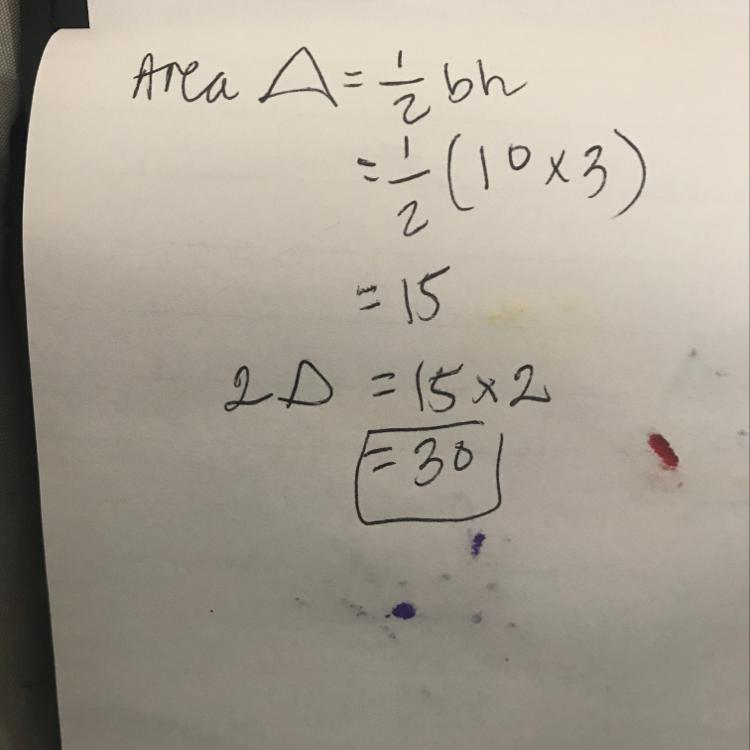 Area △ = 1/2 bh
= 1/2 (10 × 3)
= 15
2 △ = 15 × 2
= 30